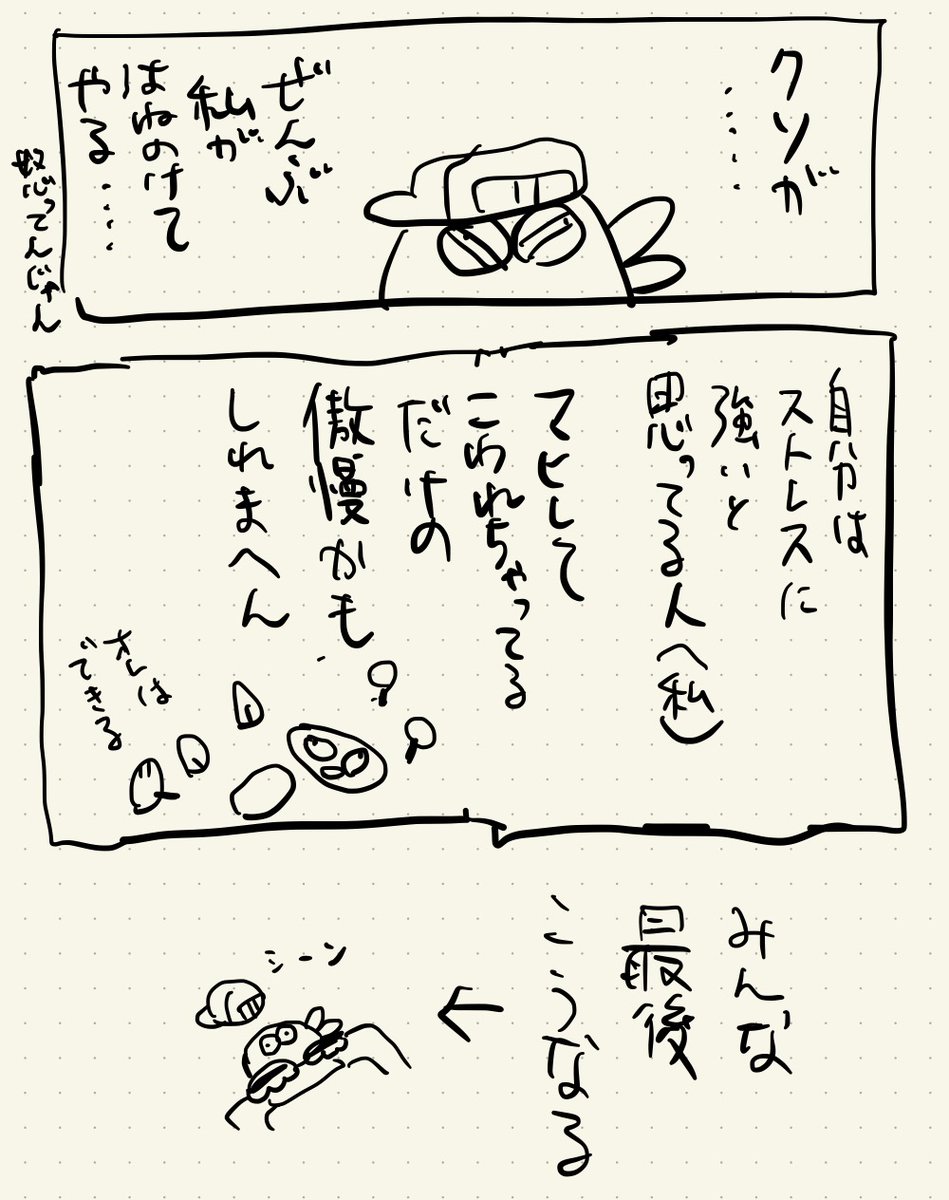 クソが
……
ぜんぶ
私が
はねのけて
やる……
怒ってんじゃん
自分は
ストレスに
強いと
思ってる人へ(私)
マヒして
こわれちゃってる
だけの
傲慢かも
しれまへん
オレは
できる
みんな
最後
こうなる
←
シーン